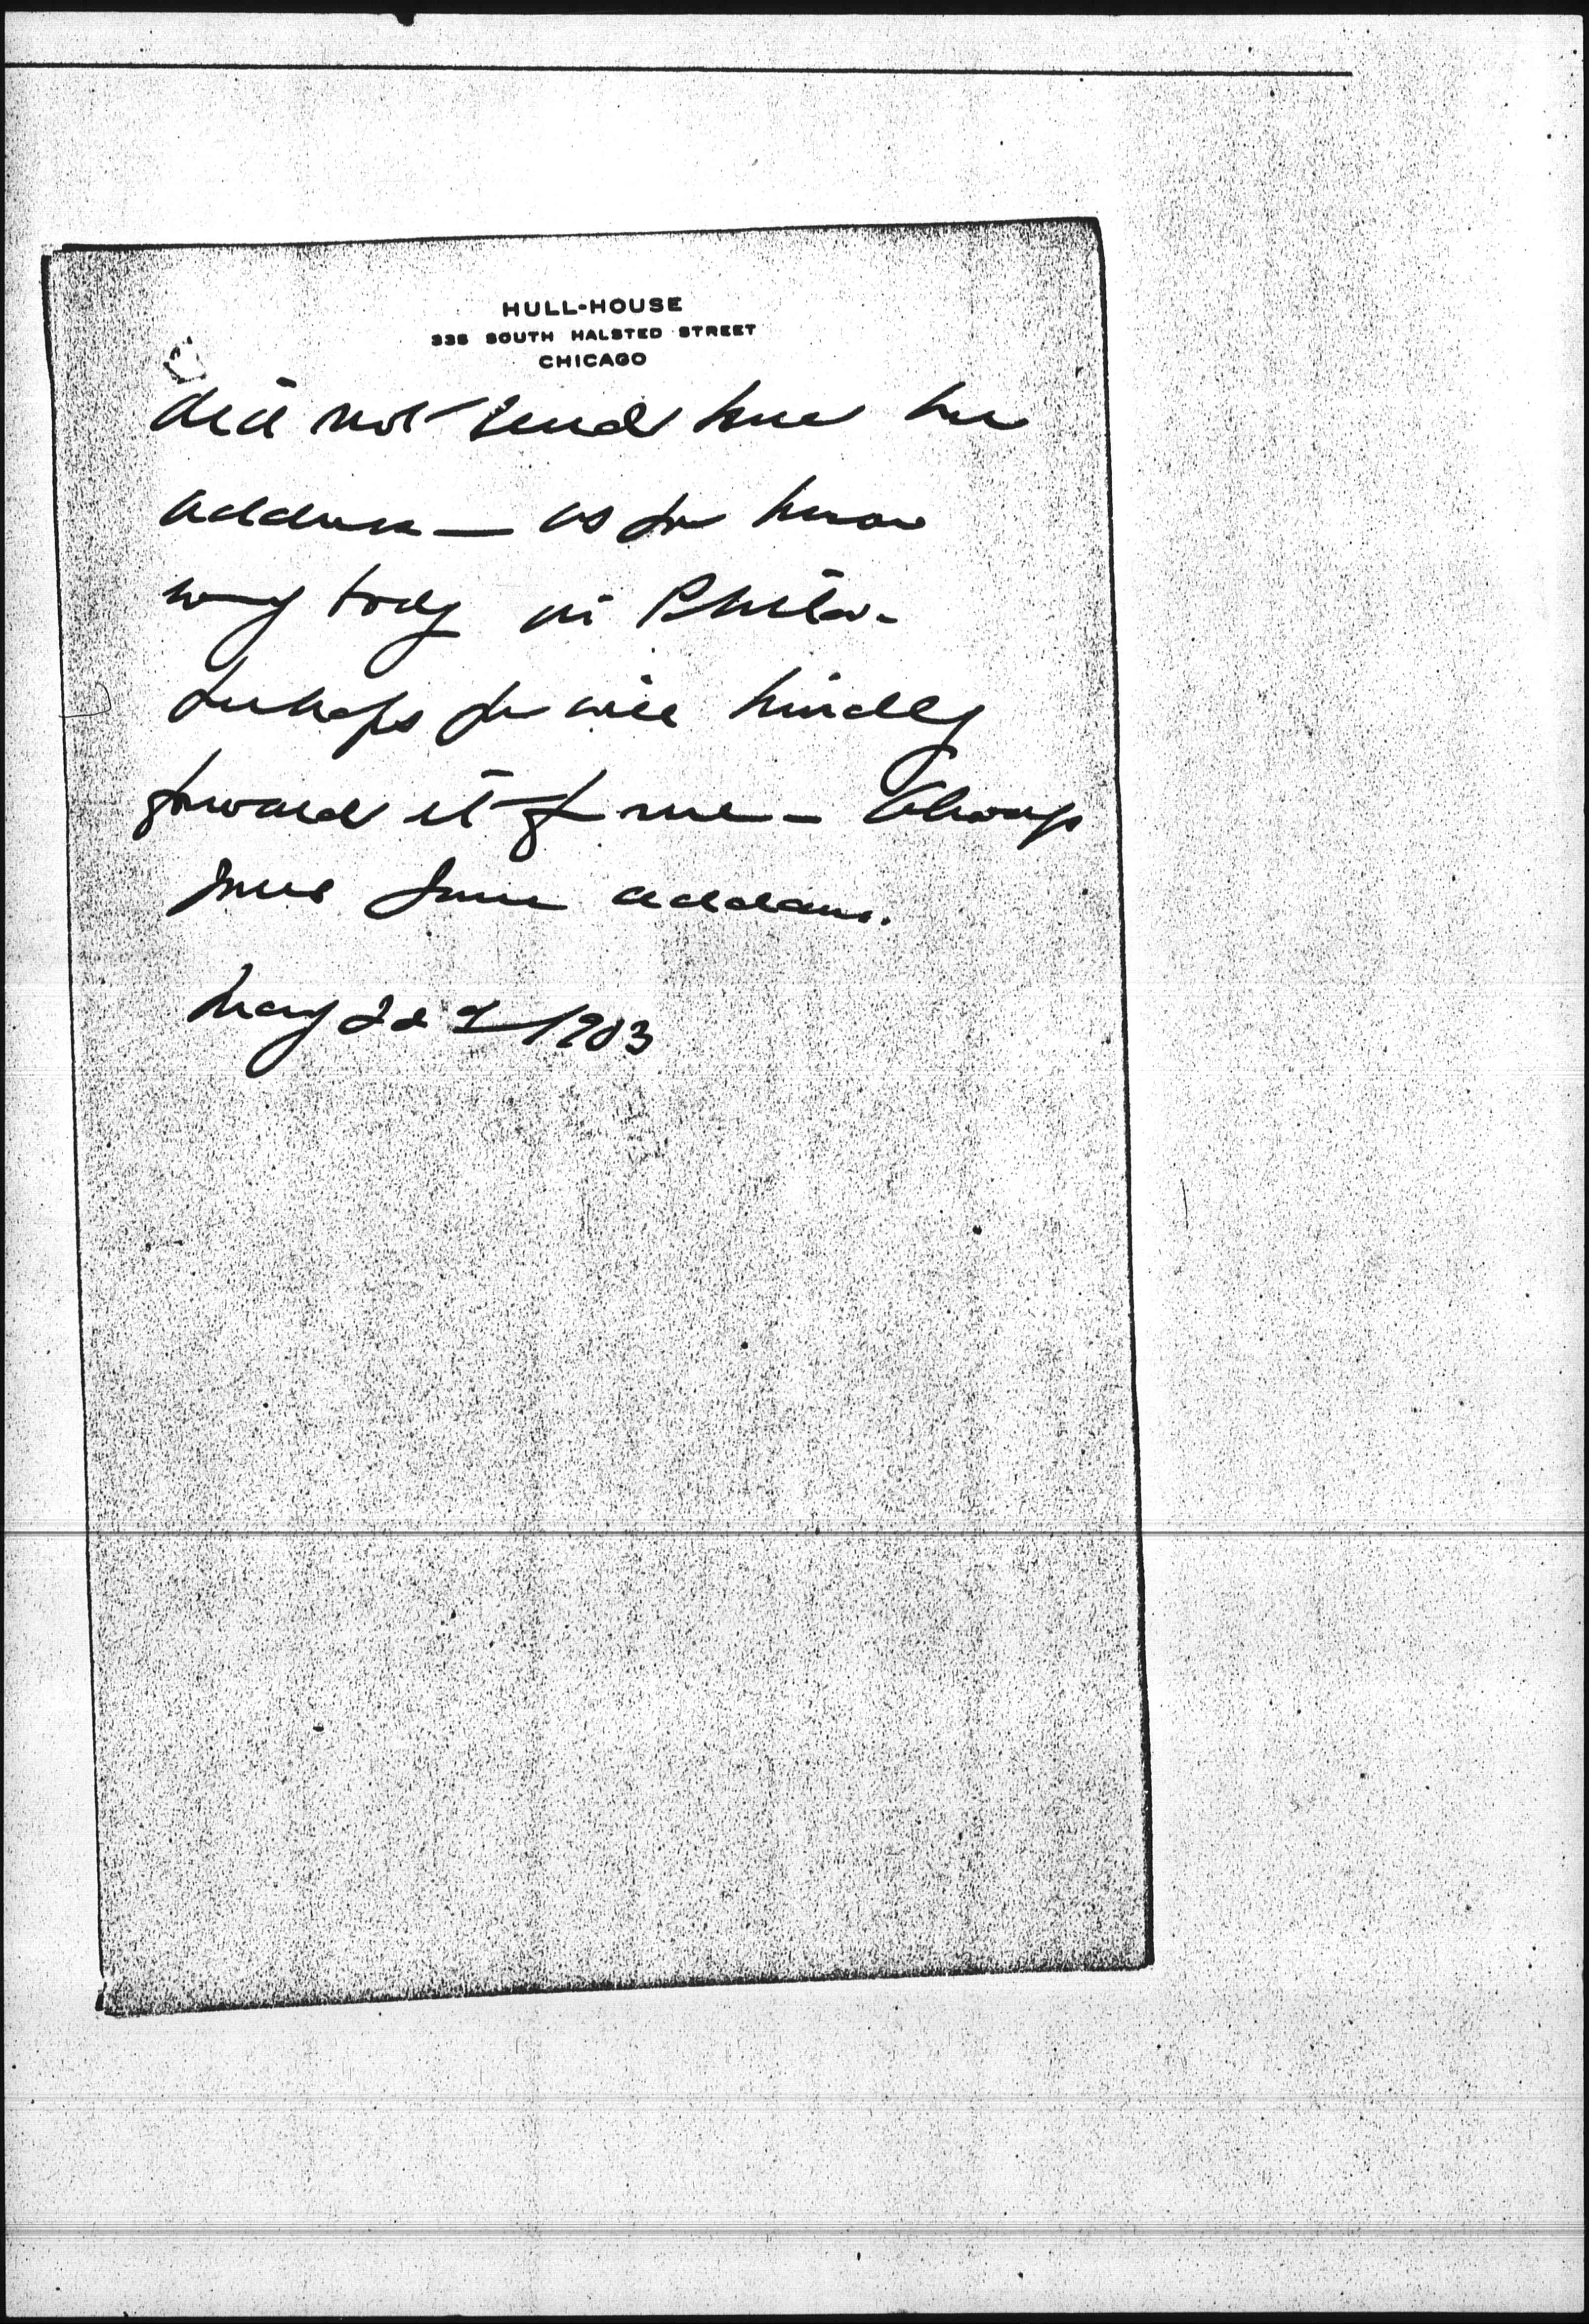 HULL-HOUSE
335 SOUTH HALSTED STREET
CHICAGO
did not send me her
address — as you know
every body in Phila.
perhaps you will kindly
forward it for me — Always
yours Jane Addams.
May 22d 1903